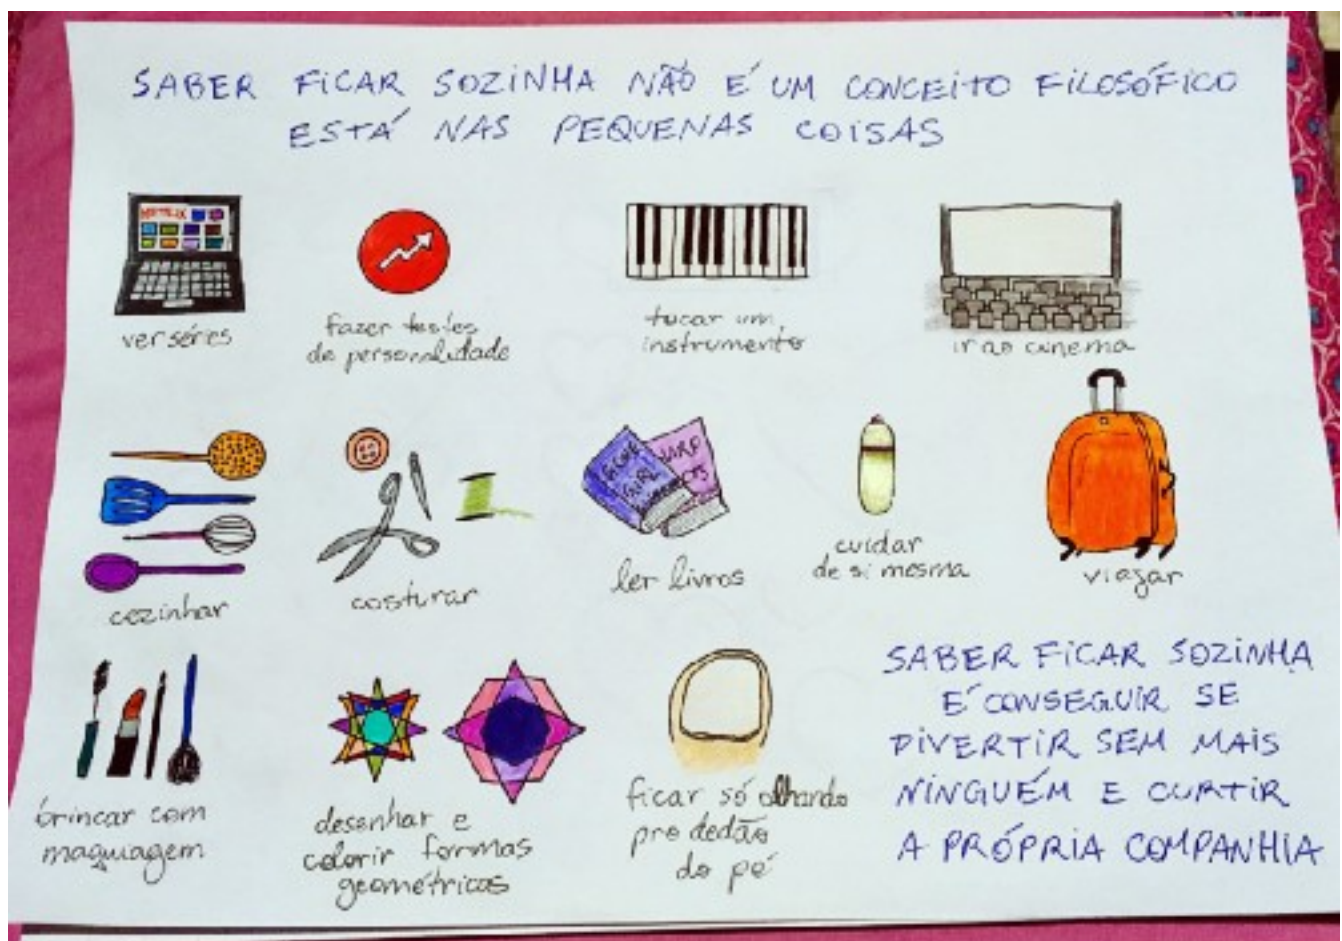 SABER FICAR SOZINHA NÃO É UM CONCEITO FILOSÓFICO
ESTÁ NAS PEQUENAS COISAS
NETFLIX
ver séries
fazer testes
de personalidade
tocar um
instrumento
ir ao cinema
cozinhar
costurar
GIRL
ler livros
cuidar
de si mesma
viajar
brincar com
maquiagem
desenhar e
colorir formas
geométricas
ficar só olhando
pro dedão
do pé
SABER FICAR SOZINHA
É CONSEGUIR SE
DIVERTIR SEM MAIS
NINGUÉM E CURTIR
A PRÓPRIA COMPANHIA